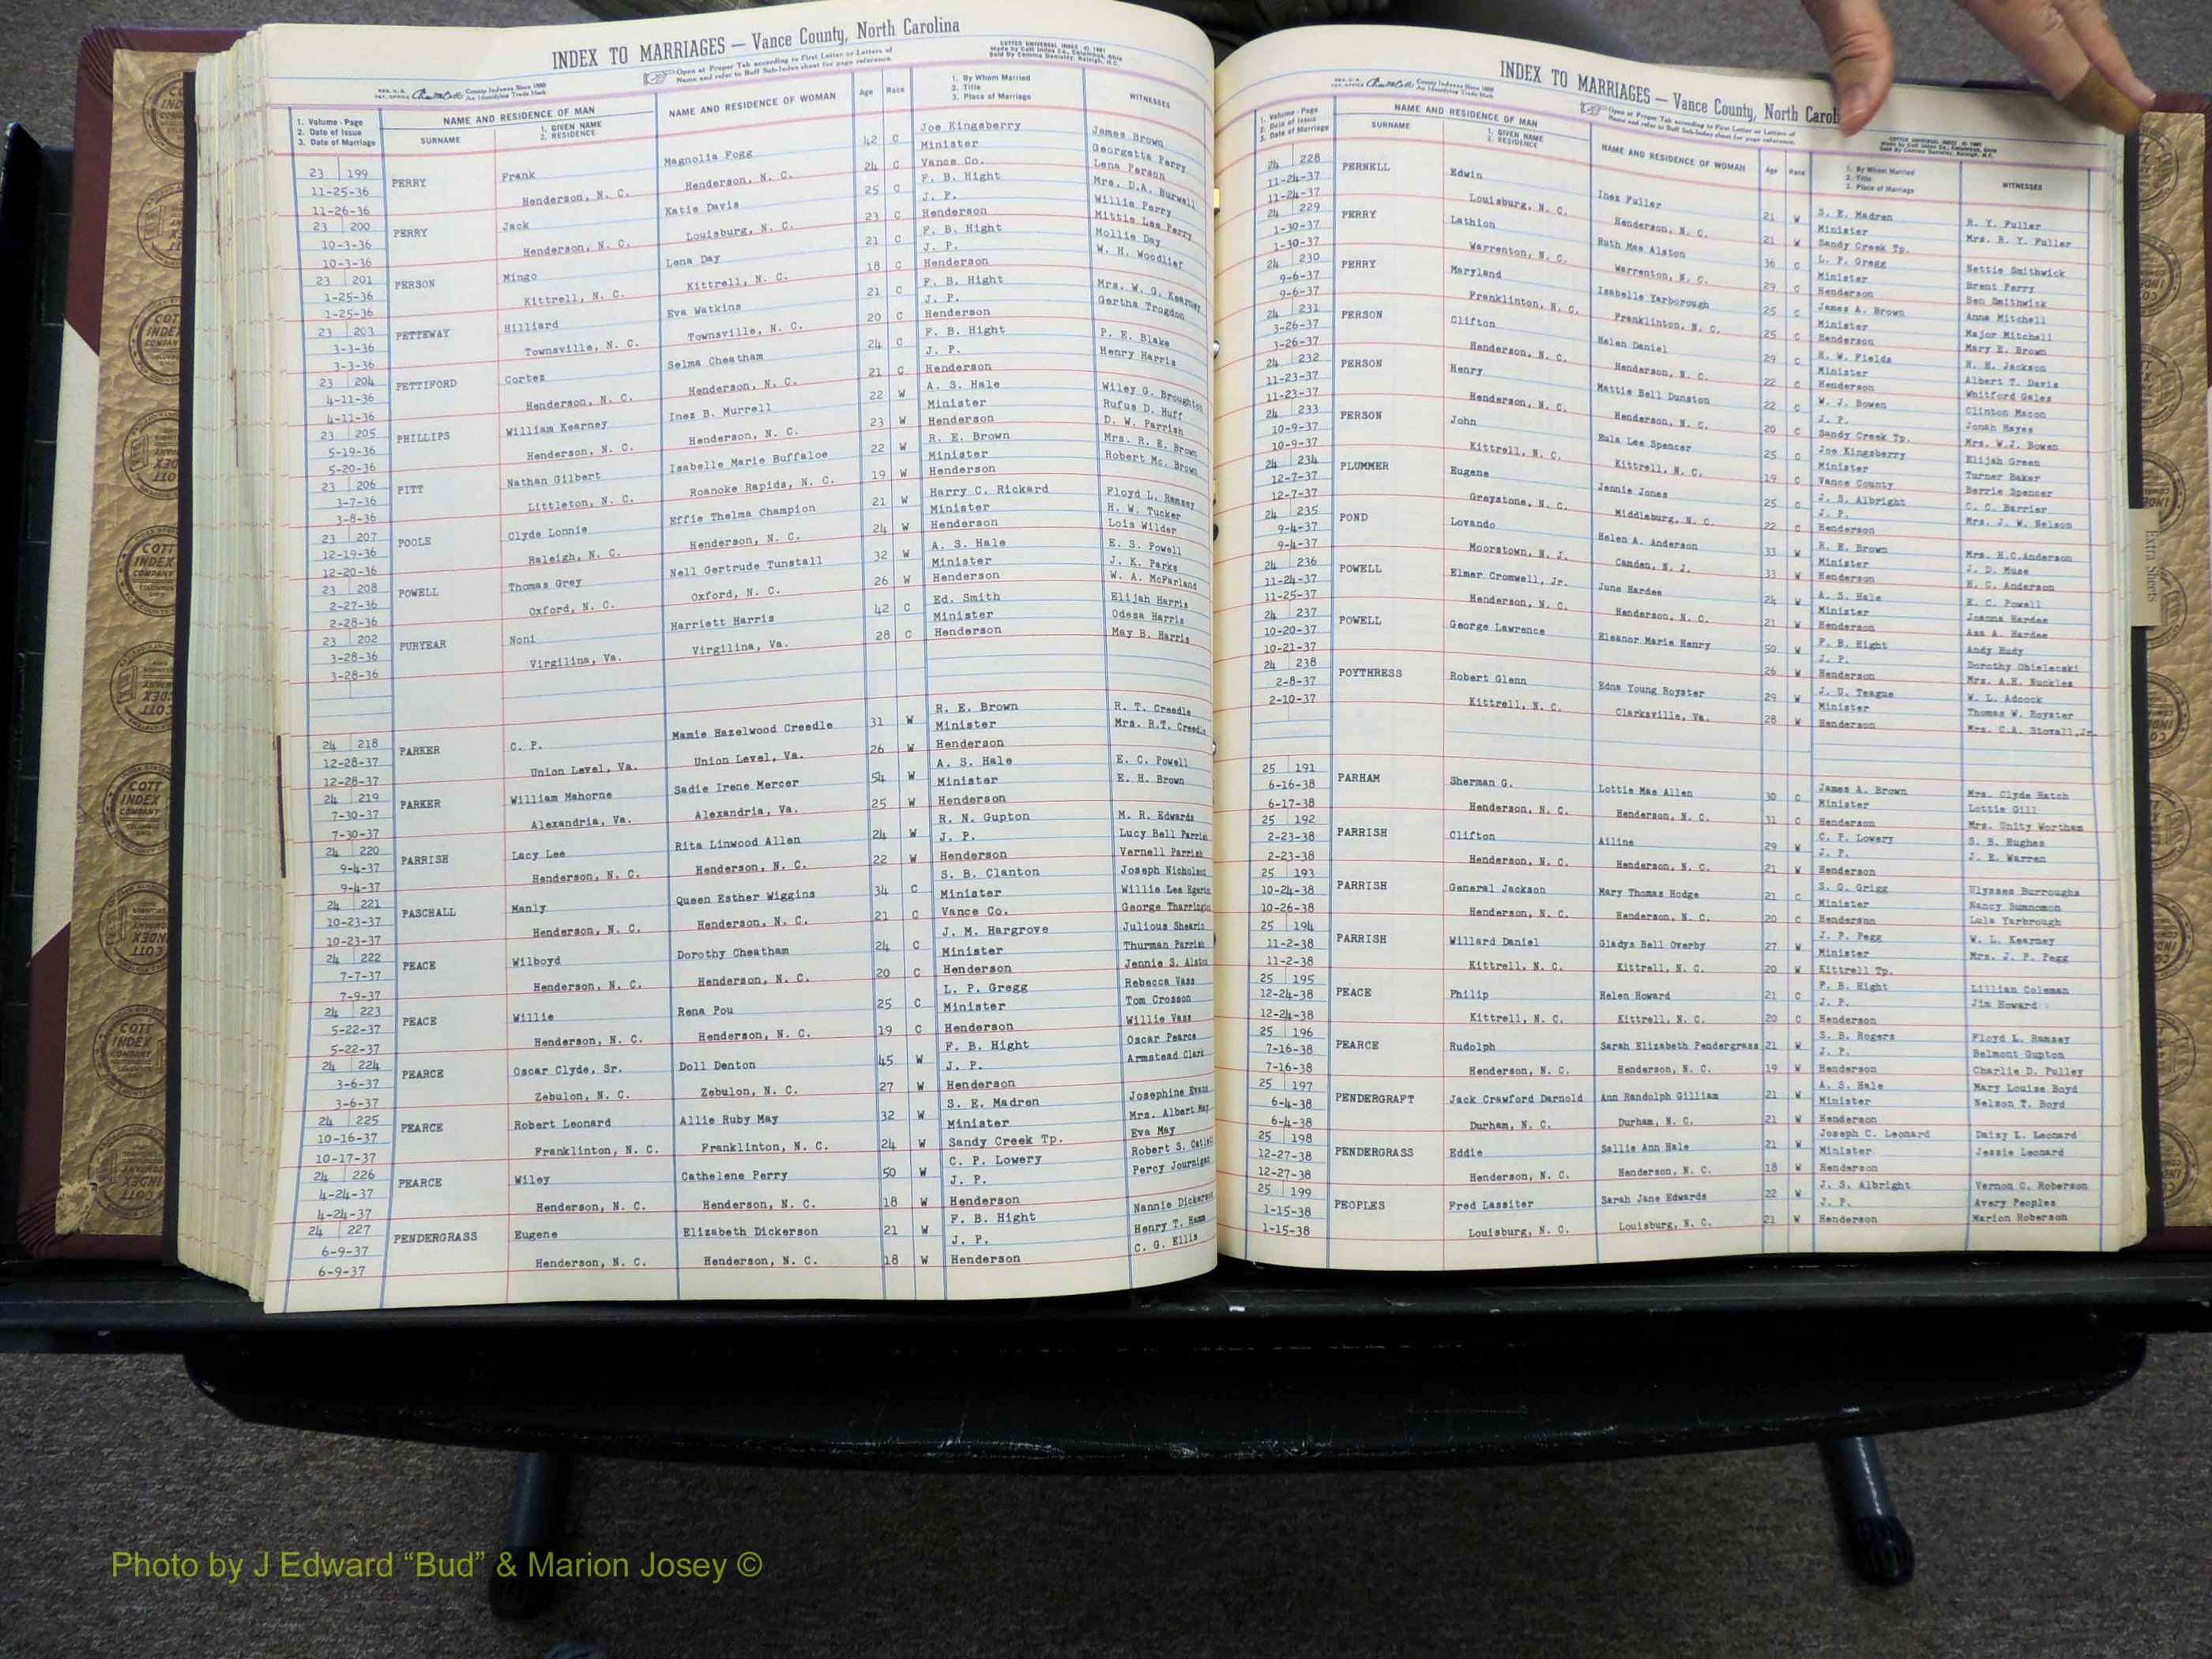 INDEX TO MARRIAGES — Vance County, North Carolina
Open at Proper Tab according to First Letter or Letters of
Name and refer to Buff Sub-Index sheet for page reference.
COTTER UNIVERSAL INDEX © 1981
Made by Cott Index Co., Columbus, Ohio
County Indexes Since 1888
An Identifying Trade Mark
1. Volume - Page
2. Date of Issue
3. Date of Marriage
NAME AND RESIDENCE OF MAN
SURNAME
1. GIVEN NAME
2. RESIDENCE
NAME AND RESIDENCE OF WOMAN
Age Race
1. By Whom Married
2. Title
3. Place of Marriage
WITNESSES
23 199 PERRY Frank Magnolia Fogg 42 C Joe Kingsberry James Brown
11-25-36 Henderson, N. C. Henderson, N. C. 24 C Minister Georgetta Perry
11-26-36 Vance Co. Lena Person
23 200 PERRY Jack Katie Davis 25 C F. B. Hight Mrs. D.A. Burwell
10-3-36 Henderson, N. C. Louisburg, N. C. 23 C J. P. Willie Perry
10-3-36 Henderson Mittie Lee Perry
23 201 PERSON Mingo Lena Day 21 C F. B. Hight Mollie Day
1-25-36 Kittrell, N. C. Kittrell, N. C. 18 C J. P. W. H. Woodlief
1-25-36 Henderson
23 203 PETTEWAY Hilliard Eva Watkins 21 C F. B. Hight Mrs. W. G. Kearney
3-3-36 Townsville, N. C. Townsville, N. C. 20 C J. P. Gertha Trogdon
3-3-36 Henderson
23 204 PETTIFORD Cortez Selma Cheatham 24 C F. B. Hight P. E. Blake
4-11-36 Henderson, N. C. Henderson, N. C. 21 C J. P. Henry Harris
4-11-36 Henderson
23 205 PHILLIPS William Kearney Inez B. Murrell 22 W A. S. Hale Wiley G. Broughton
5-19-36 Henderson, N. C. Henderson, N. C. 23 W Minister Rufus D. Huff
5-20-36 Henderson D. W. Parrish
23 206 PITT Nathan Gilbert Isabelle Marie Buffaloe 22 W R. E. Brown Mrs. R. E. Brown
3-7-36 Littleton, N. C. Roanoke Rapids, N. C. 19 W Minister Robert Mc. Brown
3-8-36 Henderson
23 207 POOLE Clyde Lonnie Effie Thelma Champion 21 W Harry C. Rickard Floyd L. Ramsey
12-19-36 Raleigh, N. C. Henderson, N. C. 24 W Minister H. W. Tucker
12-20-36 Henderson Lois Wilder
23 208 POWELL Thomas Grey Nell Gertrude Tunstall 32 W A. S. Hale E. S. Powell
2-27-36 Oxford, N. C. Oxford, N. C. 26 W Minister J. K. Parks
2-28-36 Henderson W. A. McFarland
23 202 PURYEAR Noni Harriett Harris 42 C Ed. Smith Elijah Harris
3-28-36 Virgilina, Va. Virgilina, Va. 28 C Minister Odesa Harris
3-28-36 Henderson May B. Harris
24 218 PARKER C. P. Mamie Hazelwood Creedle 31 W R. E. Brown R. T. Creedle
12-28-37 Union Level, Va. Union Level, Va. 26 W Minister Mrs. R.T. Creedle
12-28-37 Henderson
24 219 PARKER William Mahorne Sadie Irene Mercer 54 W A. S. Hale E. C. Powell
7-30-37 Alexandria, Va. Alexandria, Va. 25 W Minister E. H. Brown
7-30-37 Henderson
24 220 PARRISH Lacy Lee Rita Linwood Allen 24 W R. N. Gupton M. R. Edwards
9-4-37 Henderson, N. C. Henderson, N. C. 22 W J. P. Lucy Bell Parrish
9-4-37 Henderson Vernell Parrish
24 221 PASCHALL Manly Queen Esther Wiggins 34 C S. B. Clanton Joseph Nicholson
10-23-37 Henderson, N. C. Henderson, N. C. 21 C Minister Willie Lee
10-23-37 Vance Co. George
24 222 PEACE Wilboyd Dorothy Cheatham 24 C J. M. Hargrove Julious Shearin
7-7-37 Henderson, N. C. Henderson, N. C. 20 C Minister Thurman Parrish
7-9-37 Henderson Jennie S. Alston
24 223 PEACE Willie Rena Pou 25 C L. P. Gregg Rebecca Vass
5-22-37 Henderson, N. C. Henderson, N. C. 19 C Minister Tom Crosson
5-22-37 Henderson Willie Vass
24 224 PEARCE Oscar Clyde, Sr. Doll Denton 45 W F. B. Hight Oscar Pearce
3-6-37 Zebulon, N. C. Zebulon, N. C. 27 W J. P. Armstead Clark
3-6-37 Henderson
24 225 PEARCE Robert Leonard Allie Ruby May 32 W S. E. Madren Josephine Evans
10-16-37 Franklinton, N. C. Franklinton, N. C. 24 W Minister Mrs. Albert May
10-17-37 Sandy Creek Tp. Eva May
24 226 PEARCE Wiley Cathelene Perry 50 W C. P. Lowery Robert S.
4-24-37 Henderson, N. C. Henderson, N. C. 18 W J. P. Percy Journigan
4-24-37 Henderson
24 227 PENDERGRASS Eugene Elizabeth Dickerson 21 W F. B. Hight Nannie Dickerson
6-9-37 Henderson, N. C. Henderson, N. C. 18 W J. P. Henry T.
6-9-37 Henderson C. G. Ellis
INDEX TO MARRIAGES — Vance County, North Caroli
Open at Proper Tab according to First Letter or Letters of
Name and refer to Buff Sub-Index sheet for page reference.
County Indexes Since 1888
An Identifying Trade Mark
1. Volume - Page
2. Date of Issue
3. Date of Marriage
NAME AND RESIDENCE OF MAN
SURNAME
1. GIVEN NAME
2. RESIDENCE
NAME AND RESIDENCE OF WOMAN
Age Race
1. By Whom Married
2. Title
3. Place of Marriage
WITNESSES
24 228 PERNELL Edwin Inez Fuller 21 W S. E. Madren R. Y. Fuller
11-24-37 Louisburg, N. C. Henderson, N. C. 21 W Minister Mrs. R. Y. Fuller
11-24-37 Sandy Creek Tp.
24 229 PERRY Lathion Ruth Mae Alston 36 C L. P. Gregg Nettie Smithwick
1-30-37 Warrenton, N. C. Warrenton, N. C. 29 C Minister Brent Perry
1-30-37 Henderson Ben Smithwick
24 230 PERRY Maryland Isabelle Yarborough 25 C James A. Brown Anna Mitchell
9-6-37 Franklinton, N. C. Franklinton, N. C. 25 C Minister Major Mitchell
9-6-37 Henderson Mary E. Brown
24 231 PERSON Clifton Helen Daniel 29 C H. W. Fields H. H. Jackson
3-26-37 Henderson, N. C. Henderson, N. C. 22 C Minister Albert T. Davis
3-26-37 Henderson Whitford Gales
24 232 PERSON Henry Mattie Bell Dunston 22 C W. J. Bowen Clinton Macon
11-23-37 Henderson, N. C. Henderson, N. C. 20 C J. P. Jonah Hayes
11-23-37 Sandy Creek Tp. Mrs. W.J. Bowen
24 233 PERSON John Eula Lee Spencer 25 C Joe Kingsberry Elijah Green
10-9-37 Kittrell, N. C. Kittrell, N. C. 19 C Minister Turner Baker
10-9-37 Vance County Berrie Spencer
24 234 PLUMMER Eugene Jennie Jones 25 C J. S. Albright C. C. Barrier
12-7-37 Greystone, N. C. Middleburg, N. C. 22 C J. P. Mrs. J. W. Nelson
12-7-37 Henderson
24 235 POND Lovando Helen A. Anderson 33 W R. E. Brown Mrs. H.C.Anderson
9-4-37 Moorstown, N. J. Camden, N. J. 33 W Minister J. D. Muse
9-4-37 Henderson H. C. Anderson
24 236 POWELL Elmer Cromwell, Jr. June Hardee 24 W A. S. Hale E. C. Powell
11-24-37 Henderson, N. C. Henderson, N. C. 21 W Minister Joanna Hardee
11-25-37 Henderson Asa A. Hardee
24 237 POWELL George Lawrence Eleanor Marie Henry 50 W F. B. Hight Andy Hudy
10-20-37 26 W J. P. Dorothy Obielecski
10-21-37 Henderson Mrs. A.H. Nuckles
24 238 POYTHRESS Robert Glenn Edna Young Royster 29 W J. U. Teague W. L. Adcock
2-8-37 Kittrell, N. C. Clarksville, Va. 28 W Minister Thomas W. Royster
2-10-37 Henderson Mrs. C.A. Stovall,Jr.
25 191 PARHAM Sherman G. Lottie Mae Allen 30 C James A. Brown Mrs. Clyde Hatch
6-16-38 Henderson, N. C. Henderson, N. C. 31 C Minister Lottie Gill
6-17-38 Henderson Mrs. Unity Wortham
25 192 PARRISH Clifton Ailine 29 W C. P. Lowery S. B. Hughes
2-23-38 Henderson, N. C. Henderson, N. C. 21 W J. P. J. E. Warren
2-23-38 Henderson
25 193 PARRISH General Jackson Mary Thomas Hodge 21 C S. G. Grigg Ulysses Burroughs
10-24-38 Henderson, N. C. Henderson, N. C. 20 C Minister Nancy
10-26-38 Henderson Lula Yarbrough
25 194 PARRISH Willard Daniel Gladys Bell Overby 27 W J. P. Pegg W. L. Kearney
11-2-38 Kittrell, N. C. Kittrell, N. C. 20 W Minister Mrs. J. P. Pegg
11-2-38 Kittrell Tp.
25 195 PEACE Philip Helen Howard 21 C F. B. Hight Lillian Coleman
12-24-38 Kittrell, N. C. Kittrell, N. C. 20 C J. P. Jim Howard
12-24-38 Henderson
25 196 PEARCE Rudolph Sarah Elizabeth Pendergrass 21 W S. B. Rogers Floyd L. Ramsey
7-16-38 Henderson, N. C. Henderson, N. C. 19 W J. P. Belmont Gupton
7-16-38 Henderson Charlie D. Pulley
25 197 PENDERGRAFT Jack Crawford Darnold Ann Randolph Gilliam 21 W A. S. Hale Mary Louise Boyd
6-4-38 Durham, N. C. Durham, N. C. 21 W Minister Nelson T. Boyd
6-4-38 Henderson
25 198 PENDERGRASS Eddie Sallie Ann Hale 21 W Joseph C. Leonard Daisy L. Leonard
12-27-38 Henderson, N. C. Henderson, N. C. 18 W Minister Jessie Leonard
12-27-38 Henderson
25 199 PEOPLES Fred Lassiter Sarah Jane Edwards 22 W J. S. Albright Vernon C. Roberson
1-15-38 Louisburg, N. C. Louisburg, N. C. 21 W J. P. Avery Peoples
1-15-38 Henderson Marion Roberson
Extra Sheets
COTT INDEX COMPANY COLUMBUS OHIO
Photo by J Edward “Bud” & Marion Josey ©